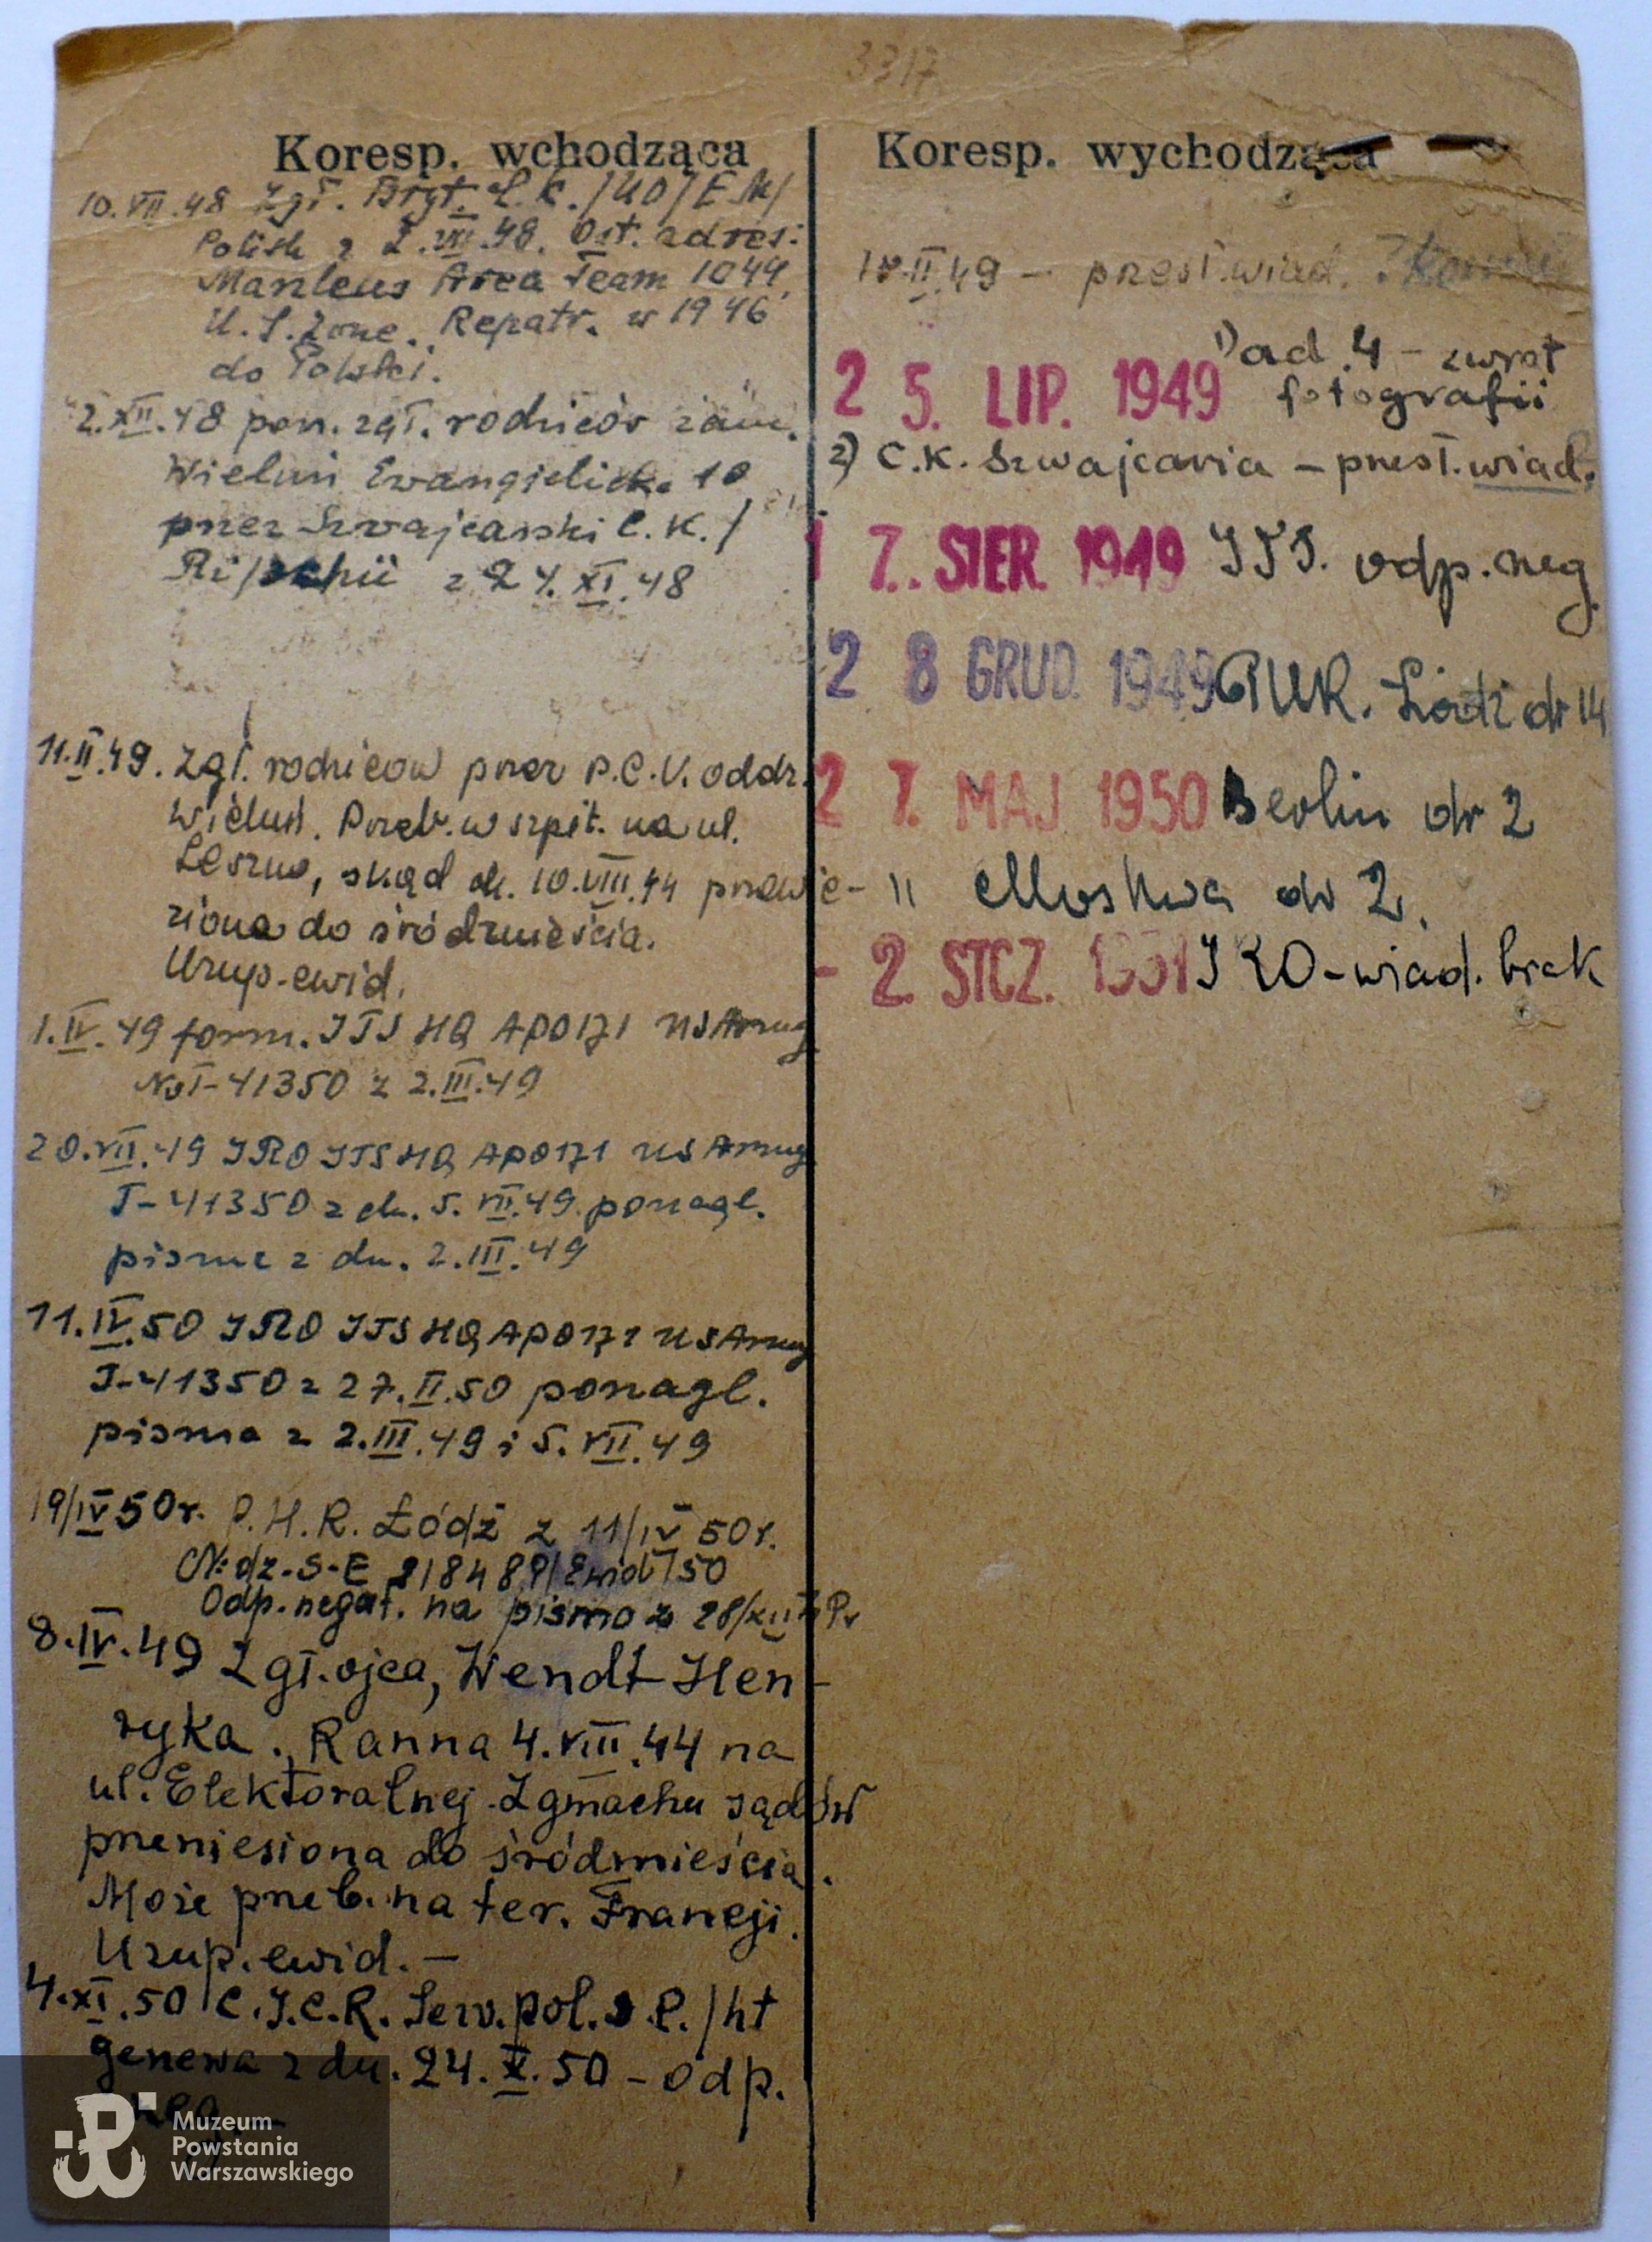 3317
Koresp. wchodząca
10.VII.48 Zgł. Bryt. C.K. /UO/EM/
Polish z 2.VII.48. Ost. adres:
Area Team 1044
U.S. Zone. Repatr. w 1946
do Polski.
2.XII.48 pon. zgł. rodziców zam.
Wieluń Ewangielicka 10
przez Szwajcarski C.K./
z 24.XI.48
11.II.49. Zgł. rodziców przez P.C.K. oddz.
Wieluń. Przeb. w szpit. na ul.
Leszno, skąd dn. 10.VIII.44 przewie-
ziona do śródmieścia.
Uzup. ewid.
1.IV.49 form. ITS HQ APO171 US Army
No T-41350 z 2.III.49
20.VII.49 IRO ITS HQ APO171 US Army
T-41350 z dn. 5.VII.49 ponagl.
pisma z dn. 2.III.49
11.IV.50 IRO ITS HQ APO171 US Army
T-41350 z 27.II.50 ponagl.
pisma z 2.III.49 i 5.VII.49
19/IV 50r. P.H.R. Łódź z 11/IV 50r.
N: dz. S-E 2/8489/Ewid/50
Odp. negat. na pismo z 28/XII
8.IV.49 Zgł. ojca, Wendt Hen-
ryka. Ranna 4.VIII.44 na
ul. Elektoralnej. Z gmachu sądów
przeniesiona do śródmieścia.
Może przeb. na ter. Francji.
Uzup. ewid. –
4.XI.50 C.I.C.R. Serv. pol. S.P./ht
Genewa z dn. 24.X.50 – odp.
neg.
Koresp. wychodząca
II.49 – przesł. wiad.
25. LIP. 1949 1) ad. 4 – zwrot
fotografii
2) C.K. Szwajcaria – przesł. wiad.
17. SIER. 1949 ITS. odp. neg.
28 GRUD. 1949 PUR. Łódź dr 14
27. MAJ 1950 Berlin dr 2
" Moskwa dr 2.
- 2. STCZ. 1951 IRO – wiad. brak
Muzeum
Powstania
Warszawskiego